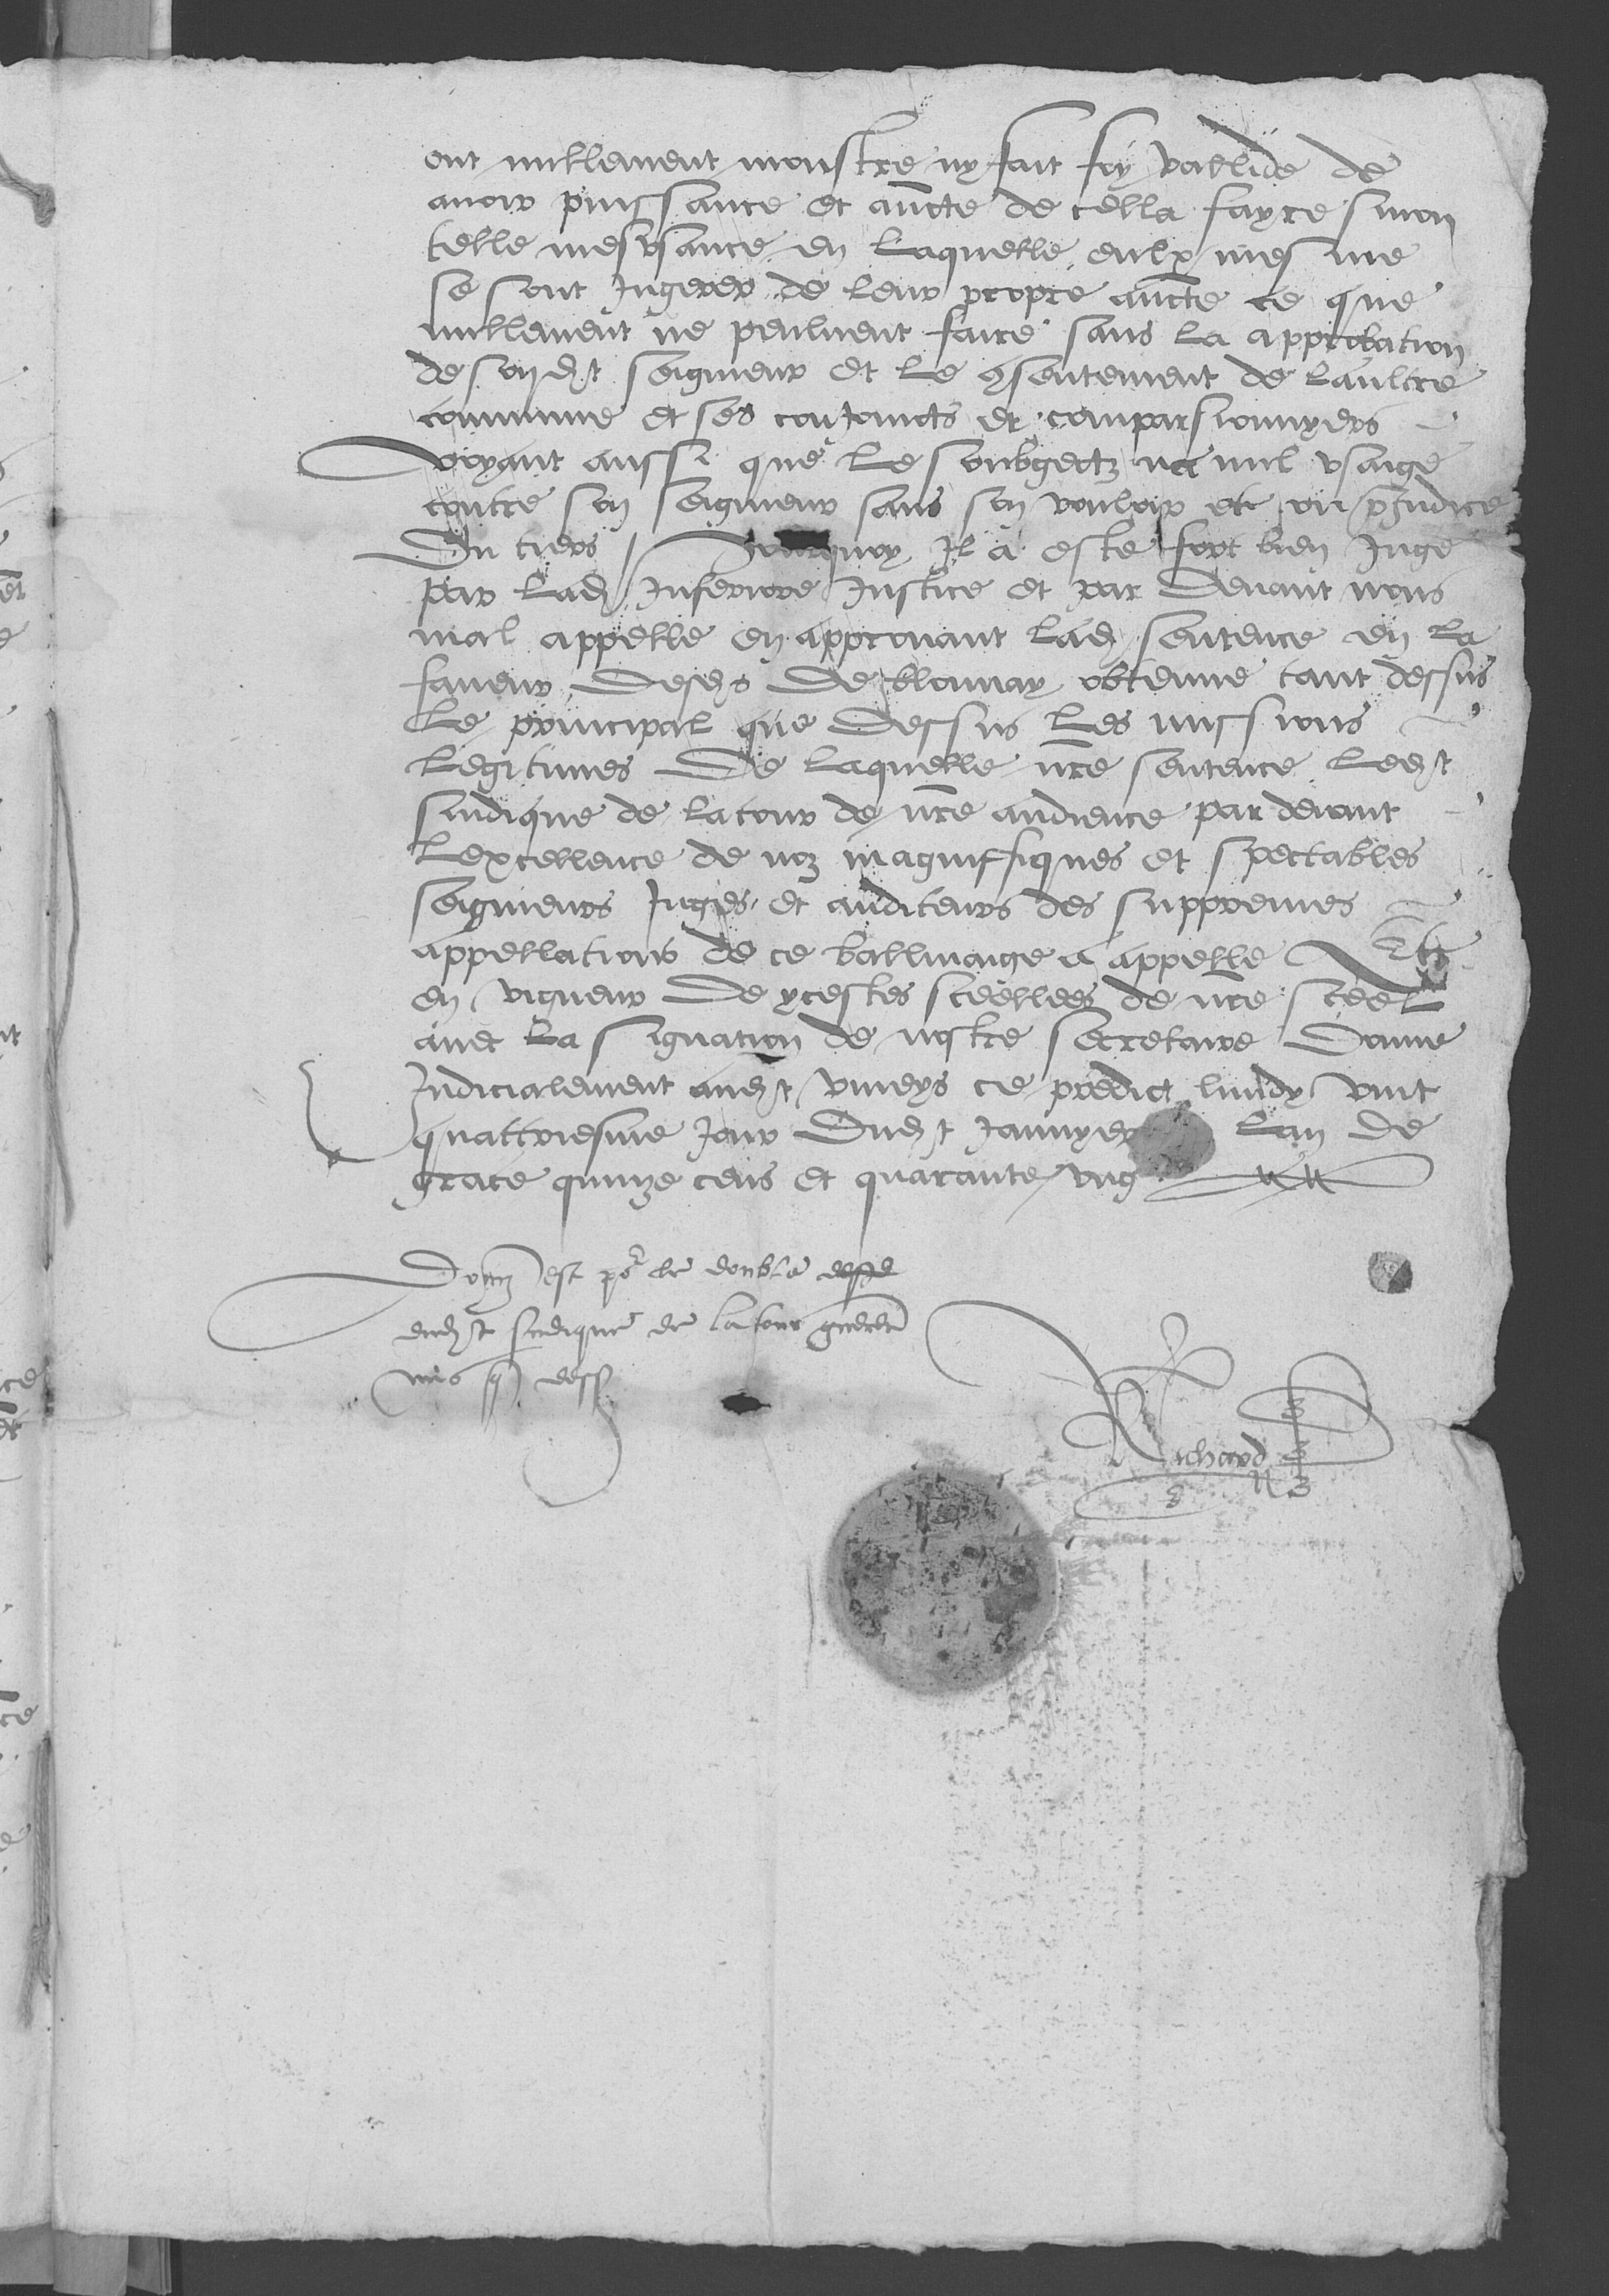 ont nullement monstre ny fait foy vallide de
avoir puissance et aucte de cella fayre sinon
telle mesusance en laquelle eulx mesme
se sont Ingerer de leur propre aucte ce que
nullement ne peulvent faire sans la approbation
de sondt seigneur et le consentement de laultre
commune et ses conjoincts et comparsionnyers
voyant aussi que le soubgectz na nul usaige
contre son seigneur sans son vouloir et ou preJudice
Du tiers / Pourquoy Il a este fort bien Juge
par lad Inferiore Justice et par devant nous
mal appelle en approuvant lad sentence en la
faveur Desds De blonnay obtenue tant dessus
le principal que Dessus les missions
legitimes De laquelle nre sentence ledt
sindique de la tour de nre audience par devant
lexcellence de noz magniffiques et spectables
seigneurs Juges et auditeurs des suppremes
appellations de ce balliuaige a appelle Et
en vigueur De ycestes sceellees de nre sceel
avec la signation de nostre secretaire Donne
Judicialement audt viveys ce predict lundy vint
quattriesme Jour Dudt Janvyer lan De
grace quinze cens et quarante ung
Donn est por le double
dudt sindique de la tour
que dess
Richard